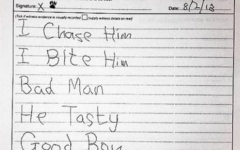 Signature: X Date: 8/2/18
(Tick if witness evidence is visually recorded) (supply witness details on rear)
I Chase Him
I BIte Him
Bad Man
He Tasty
Good Boy